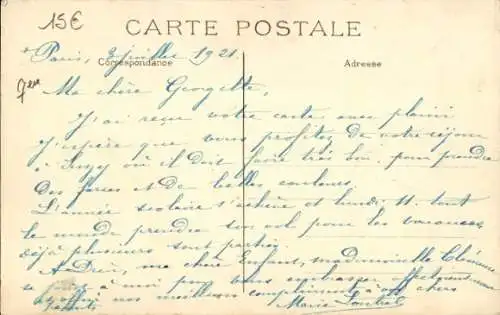 15€
CARTE POSTALE
Paris, 3 juillet 1921.
Correspondance
Adresse
7ème
Ma chère Georgette,
J'ai reçu votre carte avec plaisir
J'espère que vous profitez de votre séjour
à où il doit faire très bon, pour prendre
des forces et de belles couleurs.
L'année scolaire s'achève et lundi 11 tout
le monde prendra son vol pour les vacances,
déjà plusieurs sont partis.
Adieu, ma chère Enfant, mademoiselle Clémence
se à moi pour vous embrasser affectueusement
et offrir nos meilleurs compliments à vos chers
parents. Marie